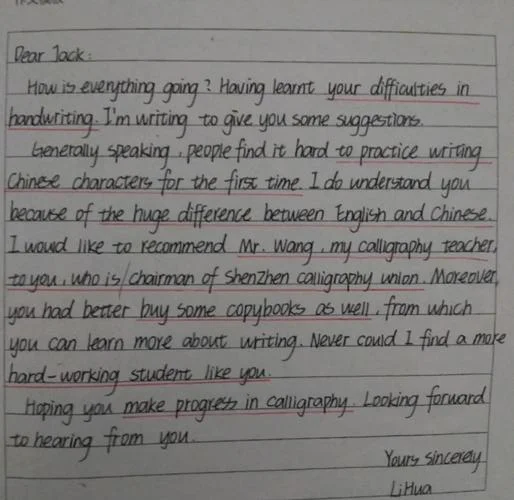 Dear Jack:
How is everything going? Having learnt your difficulties in
handwriting. I'm writing to give you some suggestions.
Generally speaking, people find it hard to practice writing
Chinese characters for the first time. I do understand you
because of the huge difference between English and Chinese.
I would like to recommend Mr. Wang, my calligraphy teacher,
to you, who is/chairman of Shenzhen calligraphy union. Moreover,
you had better buy some copybooks as well, from which
you can learn more about writing. Never could I find a more
hard-working student like you.
Hoping you make progress in calligraphy. Looking forward
to hearing from you.
Yours sincerely
LiHua